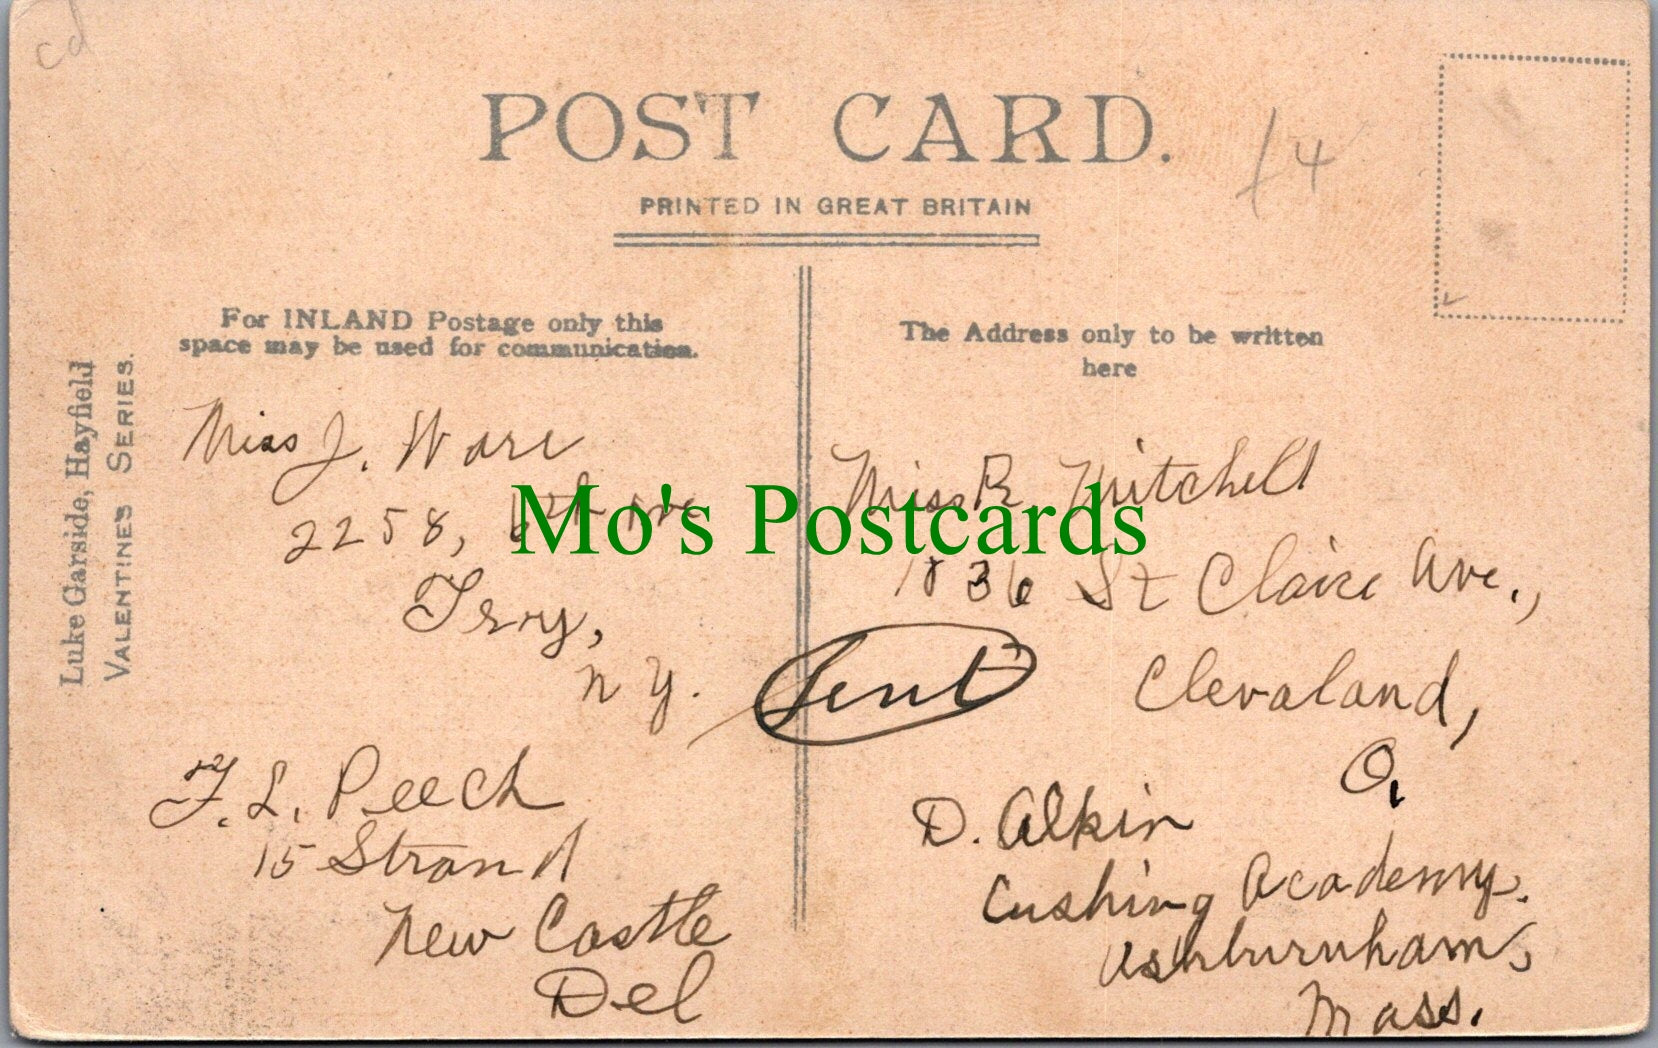 cd
POST CARD.
£4
PRINTED IN GREAT BRITAIN
For INLAND Postage only this
space may be used for communication.
The Address only to be written
here
Luke Garside, Hayfield
VALENTINES SERIES.
Miss J. Ware
2258, 6th Ave
Troy,
N Y.
Mo's Postcards
Miss R Mitchell
1836 St Claire Ave.,
Cleveland,
O.
Sent
F. L. Peech
15 Strand
New Castle
Del
D. Alkin
Cushing Academy.
Ashburnham,
Mass.